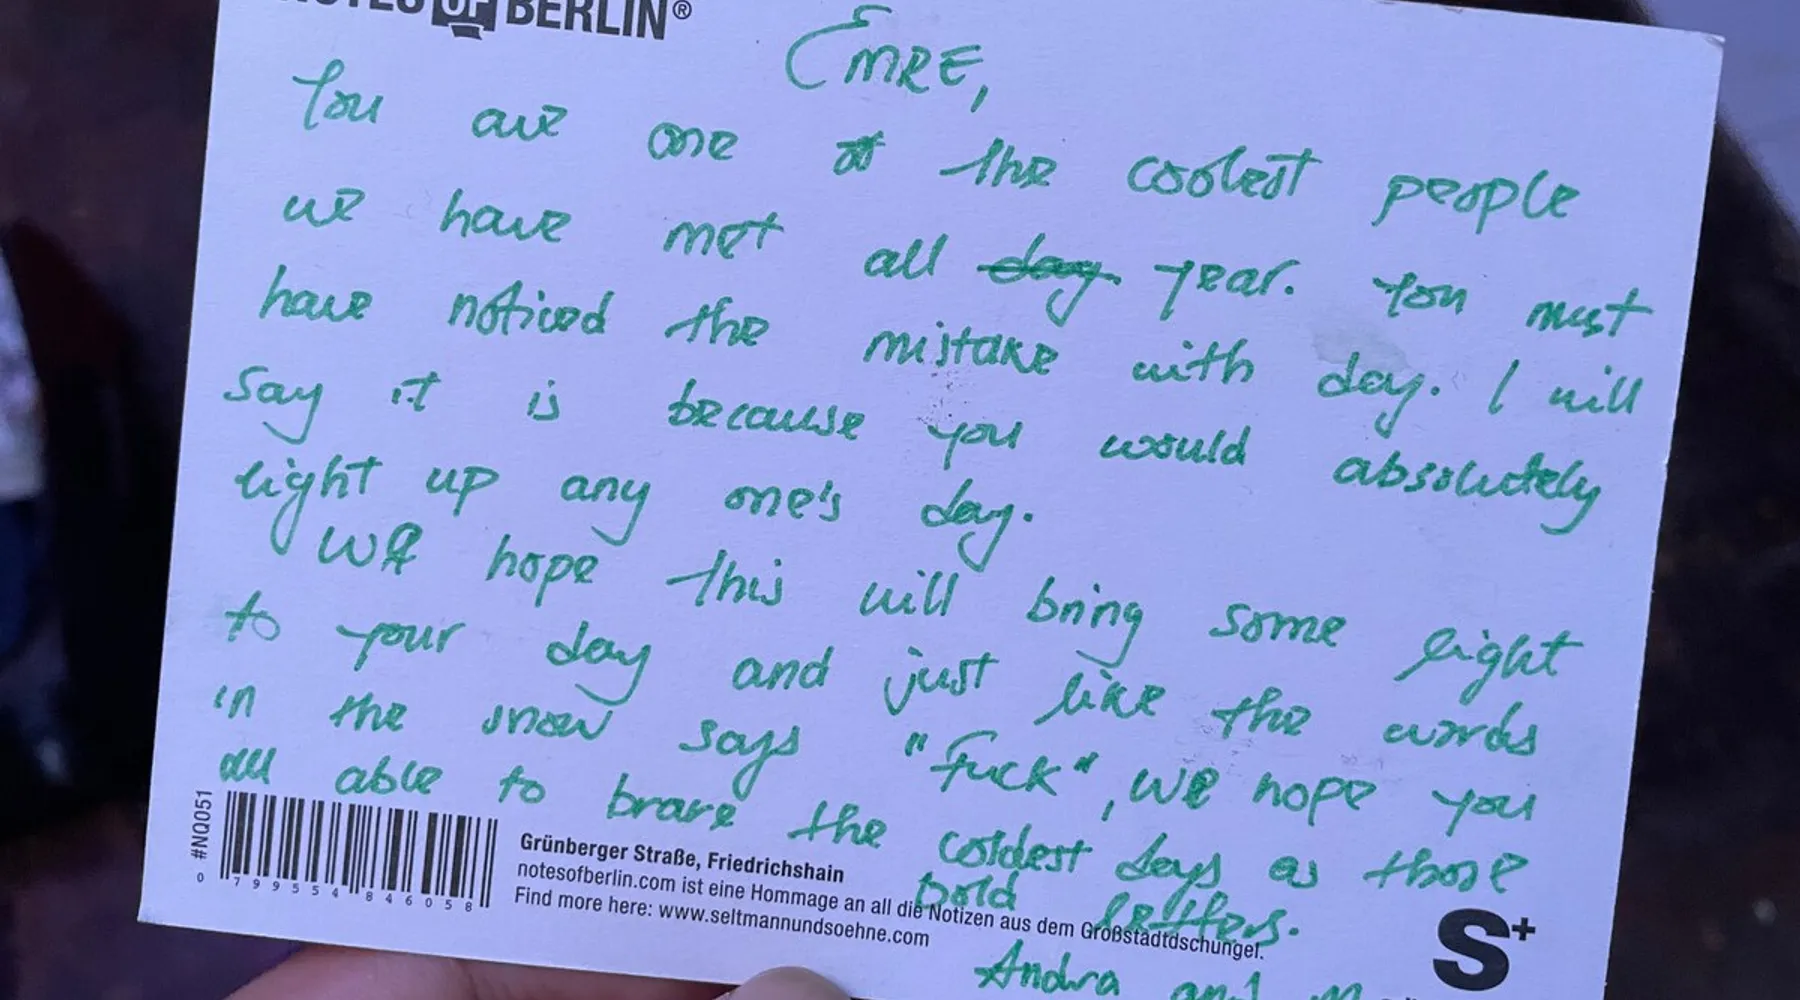 NOTES OF BERLIN®
EMRE,
You are one of the coolest people
we have met all day. year. You must
have noticed the mistake with day. I will
say it is because you would absolutely
light up any one's day.
We hope this will bring some light
to your day and just like the words
in the snow says "Fuck", we hope you
all able to brave the coldest days as those
bold letters.
Andra and
#NQ051
0 799554 846058
Grünberger Straße, Friedrichshain
notesofberlin.com ist eine Hommage an all die Notizen aus dem Großstadtdschungel.
Find more here: www.seltmannundsoehne.com
S+